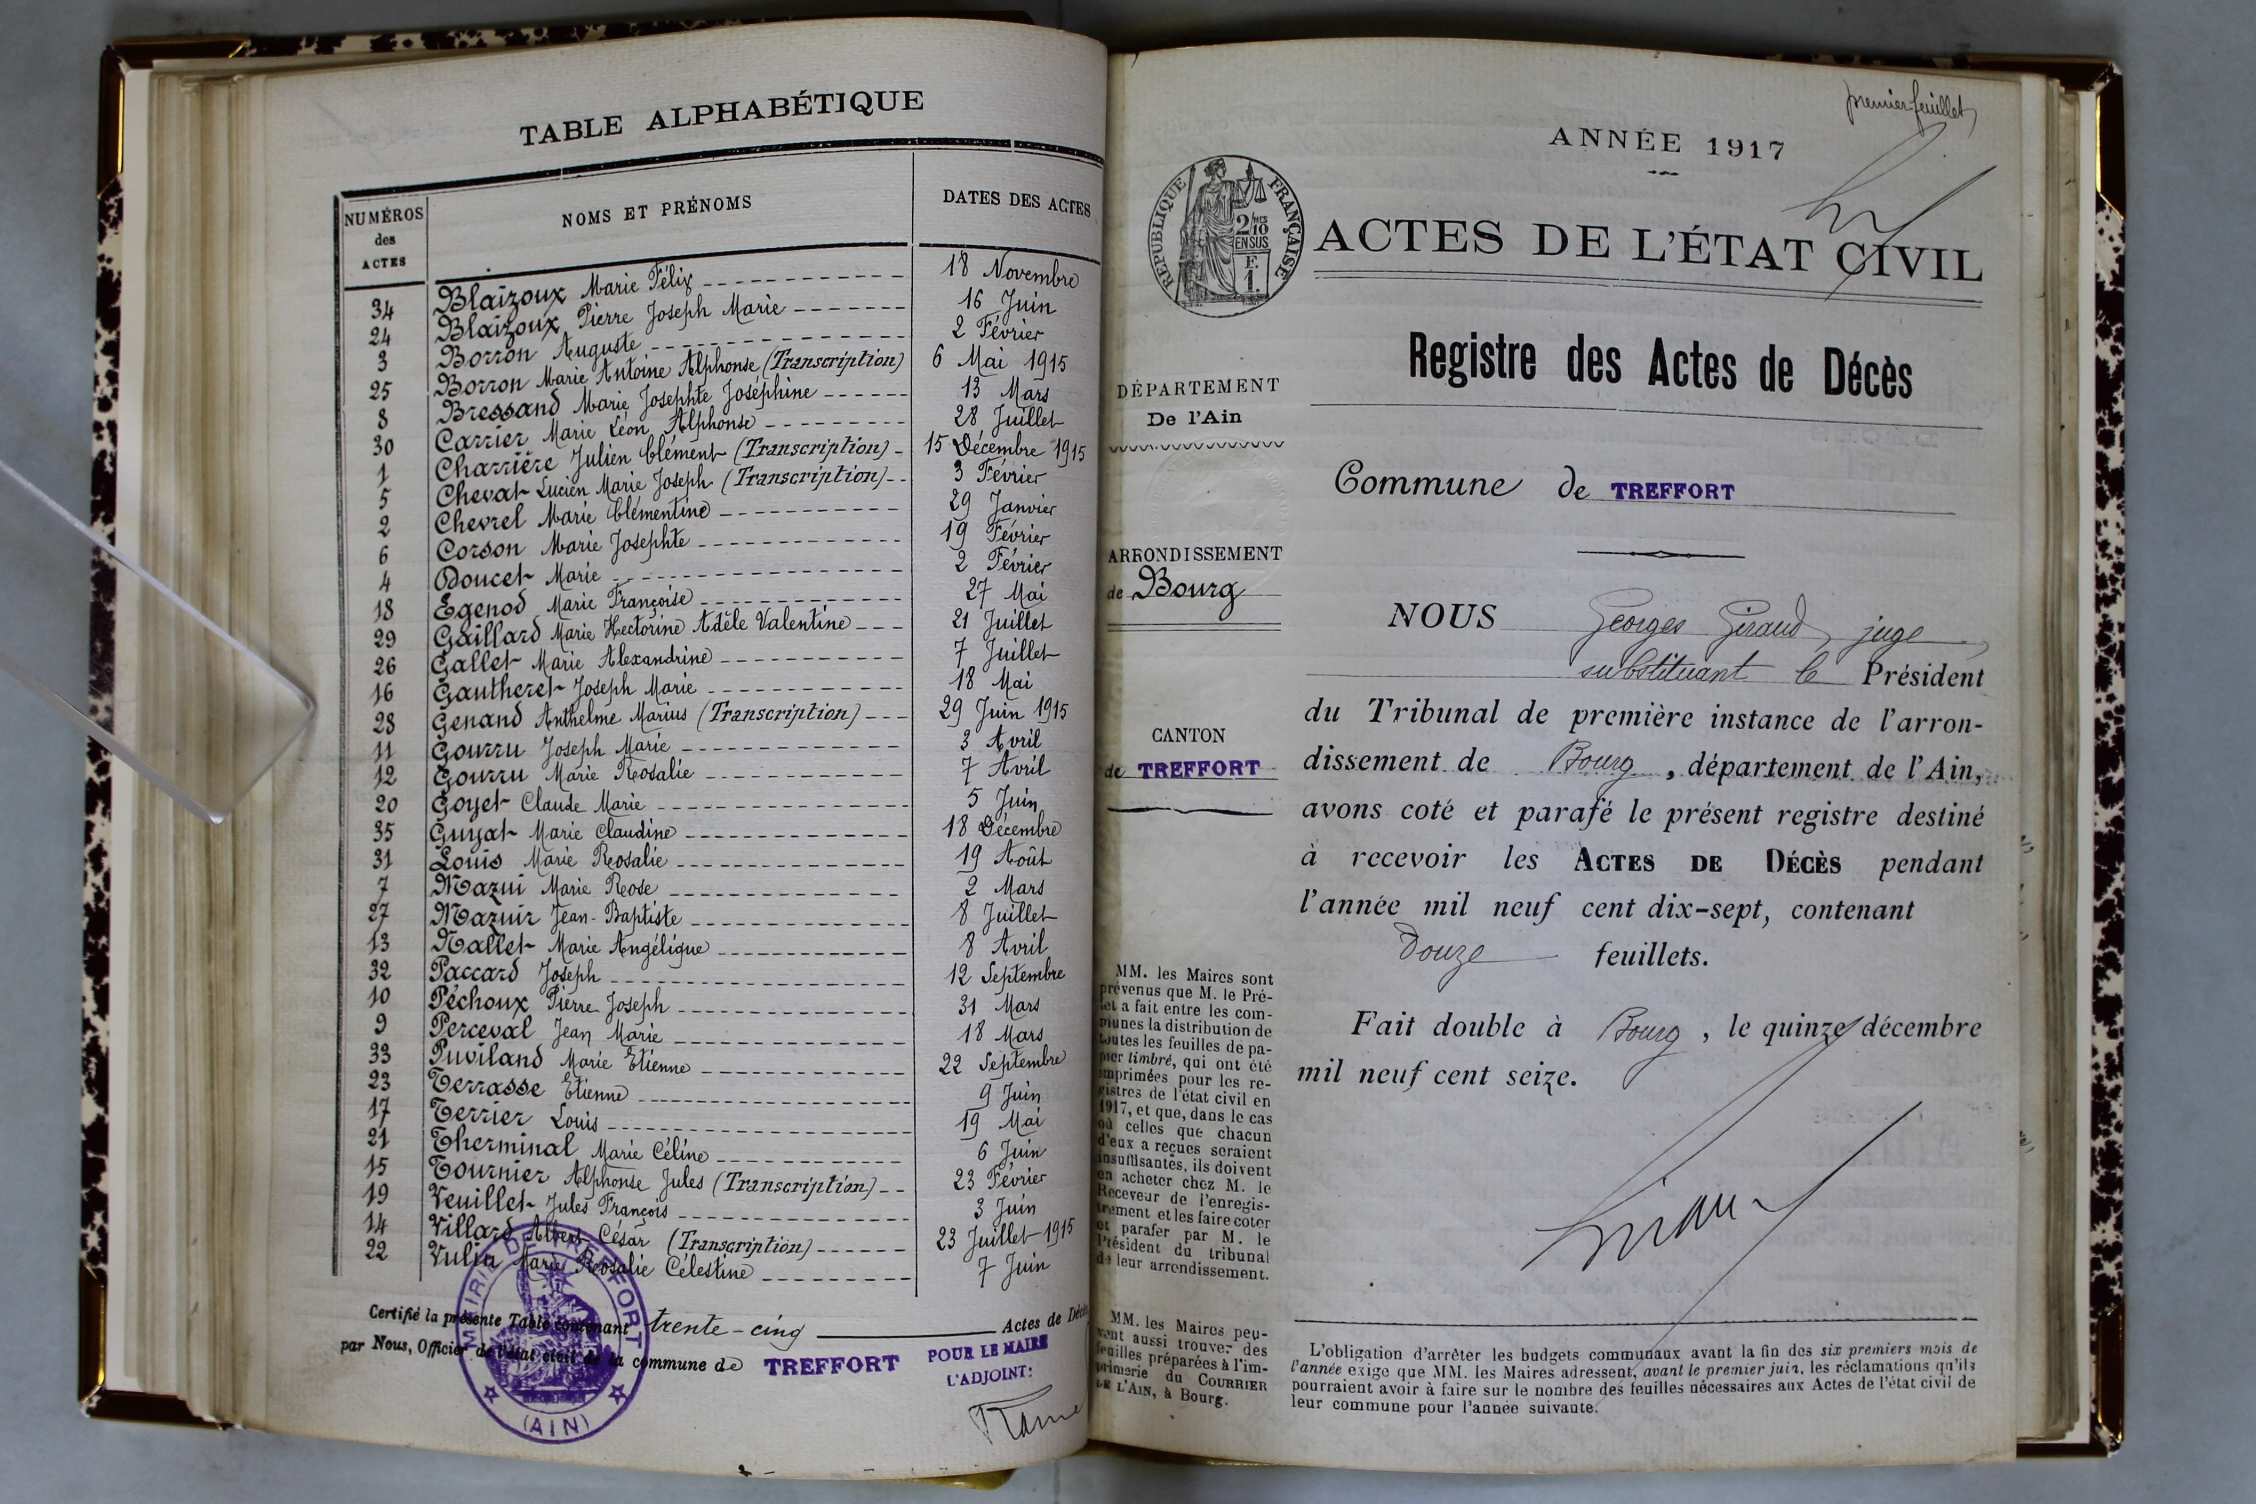 TABLE ALPHABÉTIQUE
NUMÉROS des ACTES
NOMS ET PRÉNOMS
DATES DES ACTES
34 Blaizoux Marie Félix 18 Novembre
24 Blaizoux Pierre Joseph Marie 16 Juin
3 Borron Auguste 2 Février
25 Borron Marie Antoine Alphonse (Transcription) 6 Mai 1915
8 Bressand Marie Josephte Joséphine 13 Mars
30 Carrier Marie Léon Alphonse 28 Juillet
1 Charrière Julien Clément (Transcription) 15 Décembre 1915
5 Chevat Lucien Marie Joseph (Transcription) 3 Février
2 Chevrel Marie Clémentine 29 Janvier
6 Corson Marie Josephte 19 Février
4 Doucet Marie 2 Février
18 Egenod Marie Françoise 27 Mai
29 Gaillard Marie Hectorine Adèle Valentine 21 Juillet
26 Gallet Marie Alexandrine 7 Juillet
16 Gautheret Joseph Marie 18 Mai
28 Genand Anthelme Marius (Transcription) 29 Juin 1915
11 Gourru Joseph Marie 3 Avril
12 Gourru Marie Rosalie 7 Avril
20 Goyet Claude Marie 5 Juin
35 Guyat Marie Claudine 18 Décembre
31 Louis Marie Rosalie 19 Août
7 Mazui Marie Rose 2 Mars
27 Mazuir Jean-Baptiste 8 Juillet
13 Nallet Marie Angélique 8 Avril
32 Paccard Joseph 12 Septembre
10 Péchoux Pierre Joseph 31 Mars
9 Perceval Jean Marie 18 Mars
33 Puviland Marie Etienne 22 Septembre
23 Terrasse Etienne 9 Juin
17 Terrier Louis 19 Mai
21 Therminal Marie Céline 6 Juin
15 Tournier Alphonse Jules (Transcription) 23 Février
19 Veuillet Jules François 3 Juin
14 Villard Albert César (Transcription) 23 Juillet 1915
22 Vulin Marie Rosalie Célestine 7 Juin
Certifié la présente Table contenant trente-cinq Actes de Décès
par Nous, Officier de l'état civil de la commune de TREFFORT
POUR LE MAIRE
L'ADJOINT:
MAIRIE DE TREFFORT
(AIN)
premier feuillet
ANNÉE 1917
RÉPUBLIQUE FRANÇAISE
2/10MES
EN SUS
F.
1.
ACTES DE L'ÉTAT CIVIL
Registre des Actes de Décès
DÉPARTEMENT
De l'Ain
Commune de TREFFORT
ARRONDISSEMENT
de Bourg
CANTON
de TREFFORT
NOUS Georges Giraud, juge
substituant le Président
du Tribunal de première instance de l'arron-
dissement de Bourg, département de l'Ain,
avons coté et parafé le présent registre destiné
à recevoir les ACTES DE DÉCÈS pendant
l'année mil neuf cent dix-sept, contenant
Douze feuillets.
Fait double à Bourg, le quinze décembre
mil neuf cent seize.
Giraud
MM. les Maires sont
prévenus que M. le Pré-
fet a fait entre les com-
munes la distribution de
toutes les feuilles de pa-
pier timbré, qui ont été
imprimées pour les re-
gistres de l'état civil en
1917, et que, dans le cas
où celles que chacun
d'eux a reçues seraient
insuffisantes, ils doivent
en acheter chez M. le
Receveur de l'enregis-
trement et les faire coter
et parafer par M. le
Président du tribunal
de leur arrondissement.
MM. les Maires peu-
vent aussi trouver des
feuilles préparées à l'im-
primerie du COURRIER
DE L'AIN, à Bourg.
L'obligation d'arrêter les budgets communaux avant la fin des six premiers mois de
l'année exige que MM. les Maires adressent, avant le premier juin, les réclamations qu'ils
pourraient avoir à faire sur le nombre des feuilles nécessaires aux Actes de l'état civil de
leur commune pour l'année suivante.